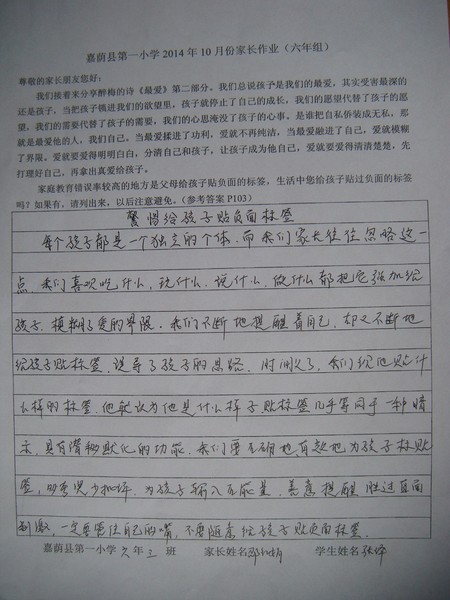 嘉荫县第一小学2014年10月份家长作业（六年组）
尊敬的家长朋友您好：
我们接着来分享醉梅的诗《最爱》第二部分。我们总说孩子是我们的最爱，其实受害最深的
还是孩子，当把孩子锁进我们的欲望里，孩子就停止了自己的成长，我们的愿望代替了孩子的愿
望，我们的需要代替了孩子的需要，我们的心思淹没了孩子的心事，是谁把自私伪装成无私，那
就是最爱他的人，我们自己，当最爱揉进了功利，爱就不再纯洁，当最爱融进了自己，爱就模糊
了界限，爱就要爱得明明白白，分清自己和孩子，让孩子成为他自己，爱就要爱得清清楚楚，先
打理好自己，再拿出真爱给孩子。
家庭教育错误率较高的地方是父母给孩子贴负面的标签，生活中您给孩子贴过负面的标签
吗？如果有，请列出来，以后注意避免。（参考答案 P103）
警惕给孩子贴负面标签
每个孩子都是一个独立的个体，而我们家长往往忽略这一
点，我们喜欢吃什么，玩什么，说什么，做什么都把它强加给
孩子，模糊了爱的界限。我们不断地提醒着自己，却又不断地
给孩子贴标签，误导了孩子的思路。时间久了，我们给他贴什
么样的标签，他就认为他是什么样子，贴标签几乎等同于一种暗
示，具有潜移默化的功能。我们要正确地有效地为孩子标贴
签，多赏识少批评，为孩子输入正能量，善意提醒胜过直面
刺激，一定要管住自己的嘴，不要随意给孩子贴负面标签。
嘉荫县第一小学 六年三 班 家长姓名 学生姓名 张